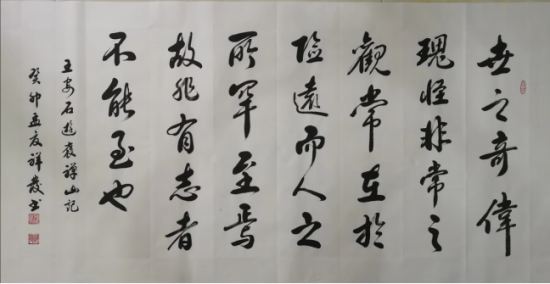 世之奇偉
瑰怪非常之
觀常在於
險遠而人之
所罕至焉
故非有志者
不能至也
王安石遊褒禪山記
癸卯孟夏祥發书